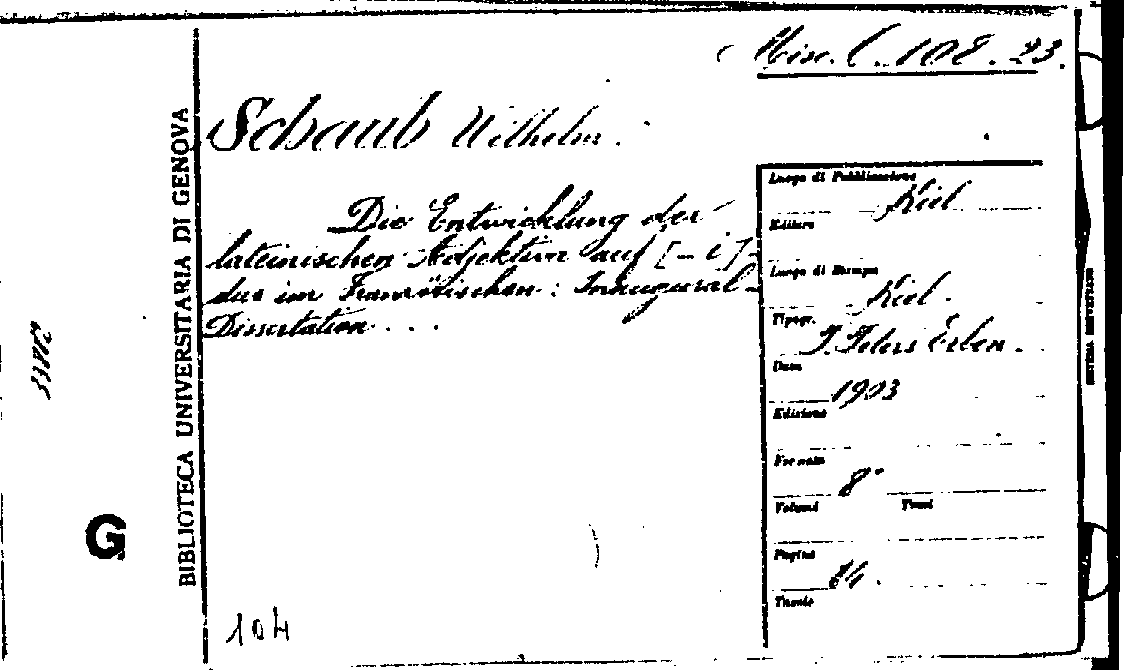 Misc. C. 108. 23.
Schaub Wilhelm.
Die Entwicklung der
lateinischen Adjektiva auf [-i]-
dus im Französischen: Inaugural-
Dissertation ...
Luogo di Pubblicazione
Kiel
Editore
Luogo di Stampa
Kiel.
Tipogr.
P. Peters Erben.
Data
1903
Edizione
Formato
8°
Volumi Tomi
Pagine
84.
Tavole
BIBLIOTECA UNIVERSITARIA DI GENOVA
G
104